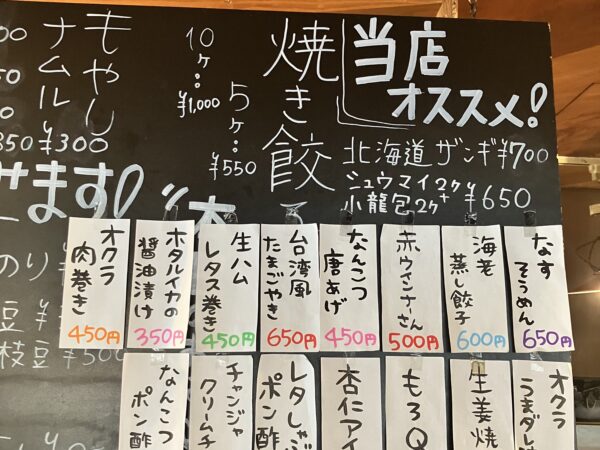 当店
オススメ!
北海道ザンギ¥700
シュウマイ2ケ+
小龍包2ケ
¥650
焼き餃子
5ケ:
¥550
10ケ:
¥1,000
もやし
ナムル
¥300
なす
そうめん
650円
海老
蒸し餃子
600円
赤ウインナーさん
500円
なんこつ
唐あげ
450円
台湾風
たまごやき
650円
生ハム
レタス巻き
450円
ホタルイカの
醤油漬け
350円
オクラ
肉巻き
450円
オクラ
うまダレ
生姜焼
もろQ
杏仁アイ
レタしゃぶ
ポン酢
チャンジャ
クリームチ
なんこつ
ポン酢
ます!
のり
豆
枝豆
¥500